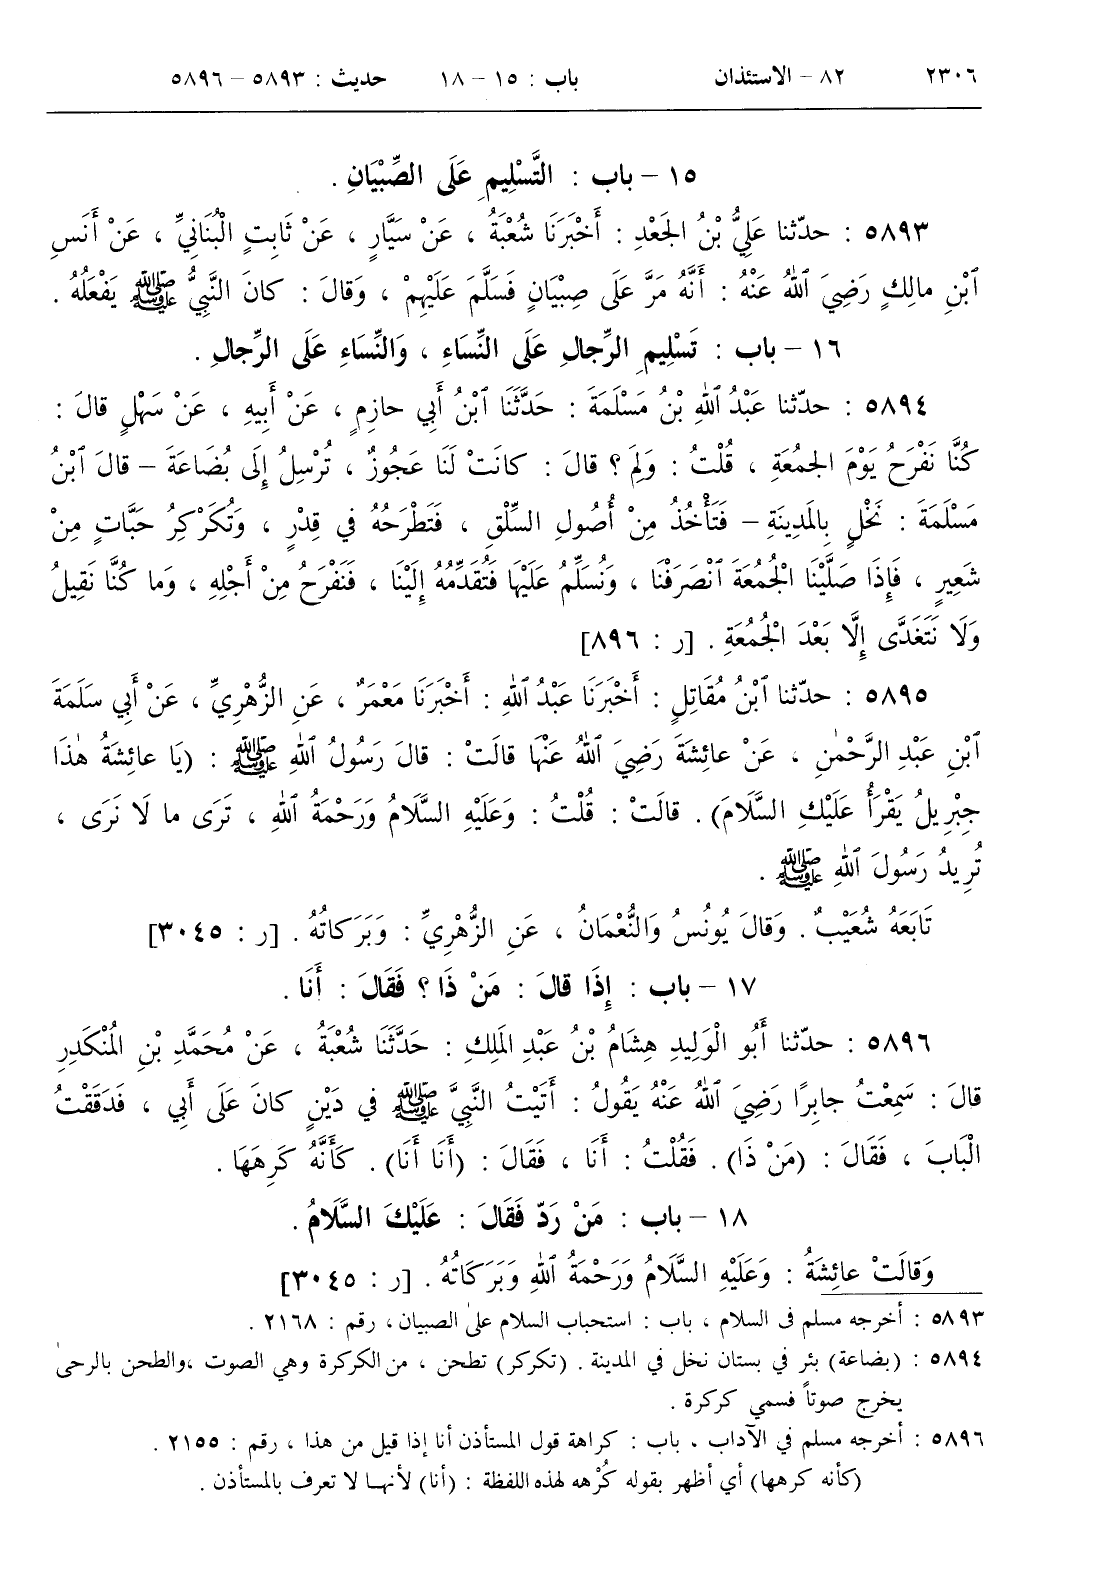 ٢٣٠٦ ٨٢ – الاستئذان باب : ١٥ – ١٨ حديث : ٥٨٩٣ – ٥٨٩٦
١٥ – باب : التَّسْلِيمِ عَلَى الصِّبْيَانِ .
٥٨٩٣ : حدّثنا عَلِيُّ بْنُ الجَعْدِ : أَخْبَرَنَا شُعْبَةُ ، عَنْ سَيَّارٍ ، عَنْ ثَابِتٍ الْبُنَانِيِّ ، عَنْ أَنَسِ
ٱبْنِ مالِكٍ رَضِيَ ٱللهُ عَنْهُ : أَنَّهُ مَرَّ عَلَى صِبْيَانٍ فَسَلَّمَ عَلَيْهِمْ ، وَقالَ : كانَ النَّبِيُّ ﷺ يَفْعَلُهُ .
١٦ – باب : تَسْلِيمِ الرِّجالِ عَلَى النِّسَاءِ ، وَالنِّسَاءِ عَلَى الرِّجالِ .
٥٨٩٤ : حدّثنا عَبْدُ ٱللهِ بْنُ مَسْلَمَةَ : حَدَّثَنَا ٱبْنُ أَبِي حازِمٍ ، عَنْ أَبِيهِ ، عَنْ سَهْلٍ قالَ :
كُنَّا نَفْرَحُ يَوْمَ الجُمُعَةِ ، قُلْتُ : وَلِمَ ؟ قالَ : كانَتْ لَنَا عَجُوزٌ ، تُرْسِلُ إِلَى بُضَاعَةَ – قالَ ٱبْنُ
مَسْلَمَةَ : نَخْلٍ بِالمَدِينَةِ – فَتَأْخُذُ مِنْ أُصُولِ السِّلْقِ ، فَتَطْرَحُهُ في قِدْرٍ ، وَتُكَرْكِرُ حَبَّاتٍ مِنْ
شَعِيرٍ ، فَإِذَا صَلَّيْنَا الْجُمُعَةَ ٱنْصَرَفْنَا ، وَنُسَلِّمُ عَلَيْهَا فَتُقَدِّمُهُ إِلَيْنَا ، فَنَفْرَحُ مِنْ أَجْلِهِ ، وَما كُنَّا نَقِيلُ
وَلَا نَتَغَدَّى إِلَّا بَعْدَ الْجُمُعَةِ . [ر : ٨٩٦]
٥٨٩٥ : حدّثنا ٱبْنُ مُقَاتِلٍ : أَخْبَرَنَا عَبْدُ ٱللهِ : أَخْبَرَنَا مَعْمَرٌ ، عَنِ الزُّهْرِيِّ ، عَنْ أَبِي سَلَمَةَ
ٱبْنِ عَبْدِ الرَّحْمٰنِ ، عَنْ عائِشَةَ رَضِيَ ٱللهُ عَنْهَا قالَتْ : قالَ رَسُولُ ٱللهِ ﷺ : (يَا عائِشَةُ هٰذَا
جِبْرِيلُ يَقْرَأُ عَلَيْكِ السَّلَامَ) . قالَتْ : قُلْتُ : وَعَلَيْهِ السَّلَامُ وَرَحْمَةُ ٱللهِ ، تَرَى ما لَا نَرَى ،
تُرِيدُ رَسُولَ ٱللهِ ﷺ .
تَابَعَهُ شُعَيْبٌ . وَقالَ يُونُسُ وَالنُّعْمَانُ ، عَنِ الزُّهْرِيِّ : وَبَرَكاتُهُ . [ر : ٣٠٤٥]
١٧ – باب : إِذَا قالَ : مَنْ ذَا ؟ فَقَالَ : أَنَا .
٥٨٩٦ : حدّثنا أَبُو الْوَلِيدِ هِشَامُ بْنُ عَبْدِ المَلِكِ : حَدَّثَنَا شُعْبَةُ ، عَنْ مُحَمَّدِ بْنِ المُنْكَدِرِ
قالَ : سَمِعْتُ جابِرًا رَضِيَ ٱللهُ عَنْهُ يَقُولُ : أَتَيْتُ النَّبِيَّ ﷺ في دَيْنٍ كانَ عَلَى أَبِي ، فَدَقَقْتُ
الْبَابَ ، فَقَالَ : (مَنْ ذَا) . فَقُلْتُ : أَنَا ، فَقَالَ : (أَنَا أَنَا) . كَأَنَّهُ كَرِهَهَا .
١٨ – باب : مَنْ رَدَّ فَقَالَ : عَلَيْكَ السَّلَامُ .
وَقالَتْ عائِشَةُ : وَعَلَيْهِ السَّلَامُ وَرَحْمَةُ ٱللهِ وَبَرَكَاتُهُ . [ر : ٣٠٤٥]
٥٨٩٣ : أخرجه مسلم فى السلام ، باب : استحباب السلام على الصبيان ، رقم : ٢١٦٨ .
٥٨٩٤ : (بضاعة) بئر في بستان نخل في المدينة . (تكركر) تطحن ، من الكركرة وهي الصوت ،والطحن بالرحى
يخرج صوتاً فسمي كركرة .
٥٨٩٦ : أخرجه مسلم في الآداب ، باب : كراهة قول المستأذن أنا إذا قيل من هذا ، رقم : ٢١٥٥ .
(كأنه كرهها) أي أظهر بقوله كُرْهه لهذه اللفظة : (أنا) لأنها لا تعرف بالمستأذن .